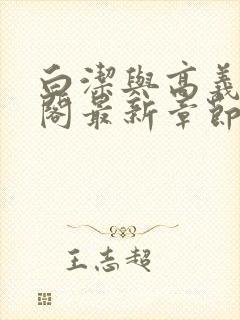 白潔與高義
閣最新章節
王志超